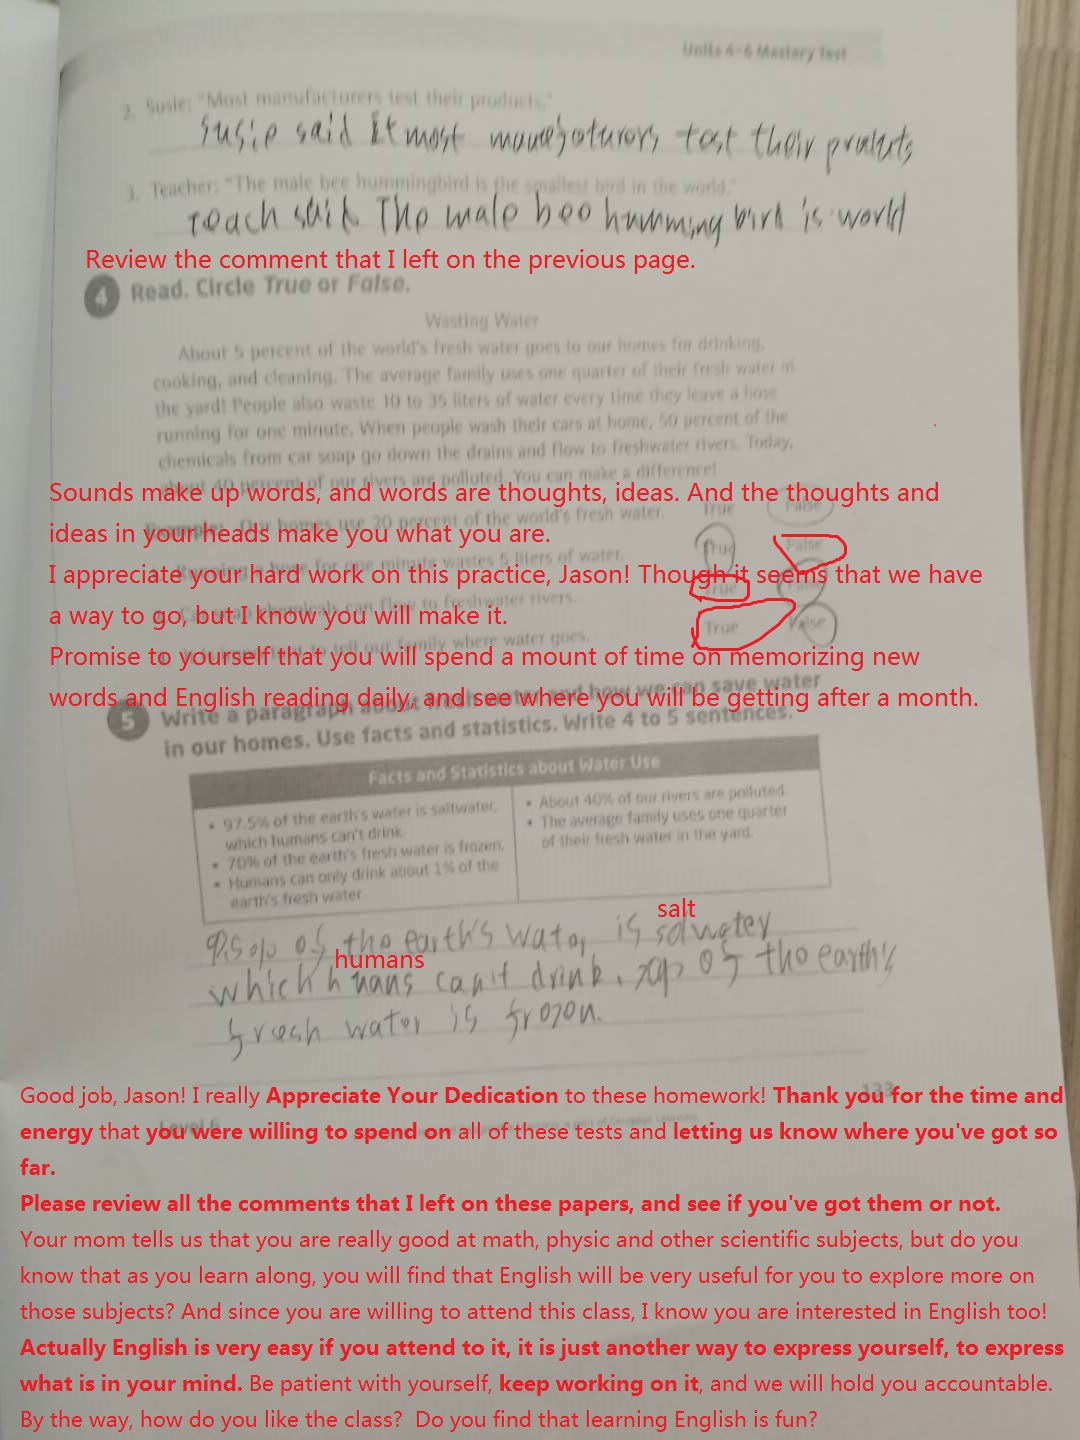 Units 4-6 Mastery Test
2. Susie: "Most manufacturers test their products."
Susie said most test their products
3. Teacher: "The male bee hummingbird is the smallest bird in the world."
Teach said The male bee humming bird is world
Review the comment that I left on the previous page.
4 Read. Circle True or False.
Wasting Water
About 5 percent of the world's fresh water goes to our homes for drinking,
cooking, and cleaning. The average family uses one quarter of their fresh water in
the yard! People also waste 10 to 35 liters of water every time they leave a hose
running for one minute. When people wash their cars at home, 50 percent of the
chemicals from car soap go down the drains and flow to freshwater rivers. Today,
about 40 percent of our rivers are polluted. You can make a difference!
Sounds make up words, and words are thoughts, ideas. And the thoughts and
Example: Our homes use 20 percent of the world's fresh water. True False
ideas in your heads make you what you are.
for one minute wastes 5 liters of water. True False
I appreciate your hard work on this practice, Jason! Though it seems that we have
chemicals can flow to freshwater rivers. True False
a way to go, but I know you will make it.
tell our family where water goes. True False
Promise to yourself that you will spend a mount of time on memorizing new
words and English reading daily, and see where you will be getting after a month.
5 Write a paragraph about fresh water and how we can save water
in our homes. Use facts and statistics. Write 4 to 5 sentences.
Facts and Statistics about Water Use
• 97.5% of the earth's water is saltwater,
which humans can't drink.
• 70% of the earth's fresh water is frozen.
• Humans can only drink about 1% of the
earth's fresh water
• About 40% of our rivers are polluted.
• The average family uses one quarter
of their fresh water in the yard.
salt
of the earth's water is salwater
humans
which hunans can't drink. of the earth's
fresh water is frozen.
Good job, Jason! I really Appreciate Your Dedication to these homework! Thank you for the time and
133
energy that you were willing to spend on all of these tests and letting us know where you've got so
Level 6
far.
Please review all the comments that I left on these papers, and see if you've got them or not.
Your mom tells us that you are really good at math, physic and other scientific subjects, but do you
know that as you learn along, you will find that English will be very useful for you to explore more on
those subjects? And since you are willing to attend this class, I know you are interested in English too!
Actually English is very easy if you attend to it, it is just another way to express yourself, to express
what is in your mind. Be patient with yourself, keep working on it, and we will hold you accountable.
By the way, how do you like the class? Do you find that learning English is fun?